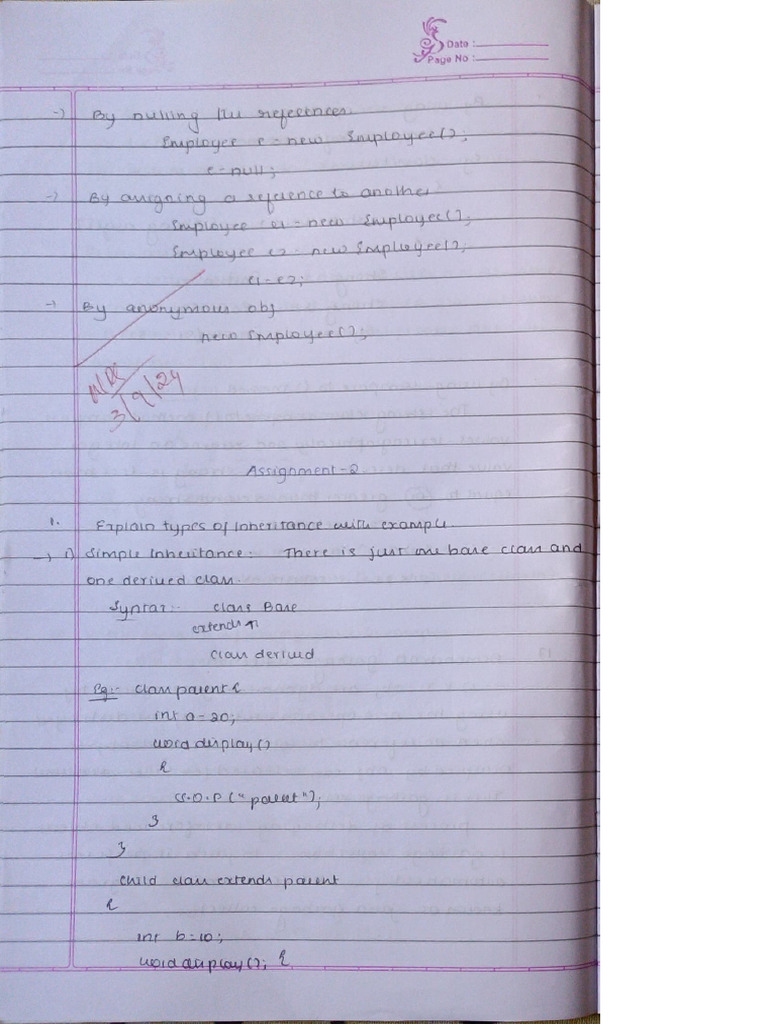 Date :
Page No :
→ By nulling the references
Employee e = new Employee();
e = null;
→ By assigning a reference to another
Employee e1 = new Employee();
Employee e2 = new Employee();
e1 = e2;
→ By anonymous obj
new Employee();
3/9/24
Assignment - 2
1. Explain types of Inheritance with example.
→ 1) Simple Inheritance: There is just one base class and
one derived class.
Syntax:- class Base
extends ↑
class derived
Eg:- class parent {
int a = 20;
void display()
{
S.O.P ("parent");
}
}
child class extends parent
{
int b = 10;
void display(); {